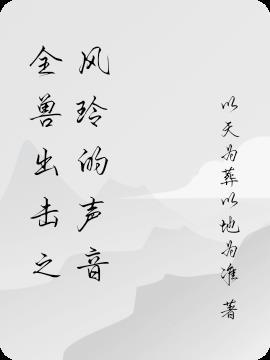 全兽出击之
风玲的声音
以天为葬以地为准 著